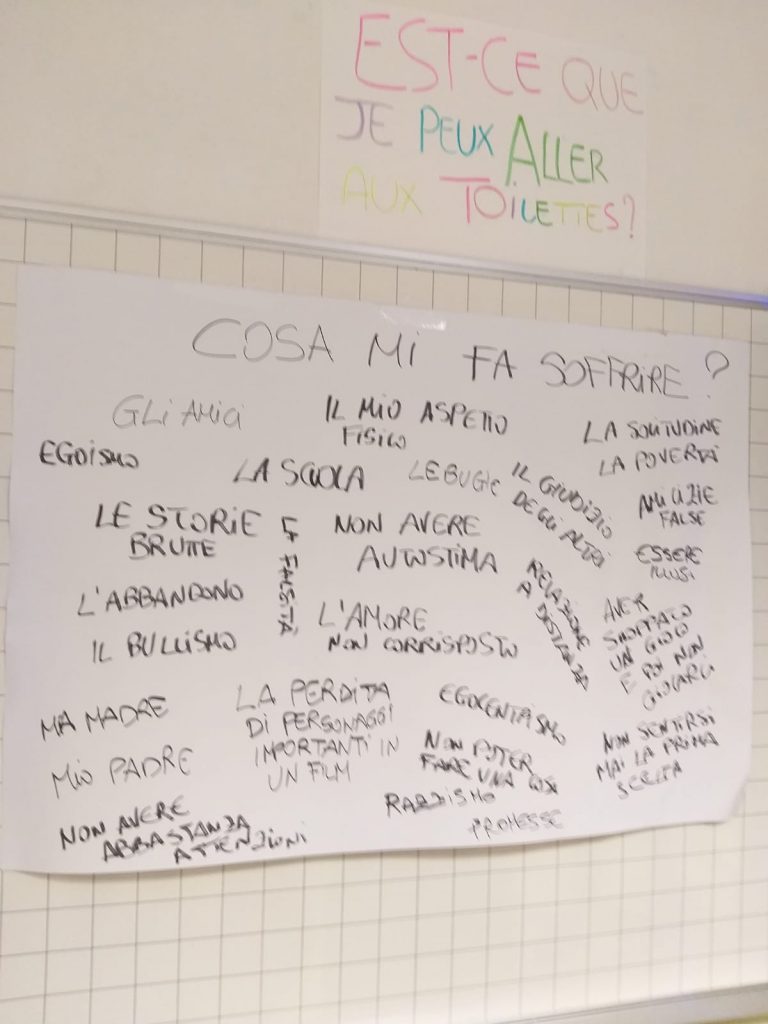 EST-CE QUE
JE PEUX ALLER
AUX TOILETTES?
COSA MI FA SOFFRIRE?
GLI AMICI
IL MIO ASPETTO
FISICO
LA SOLITUDINE
LA POVERTÀ
EGOISMO
LA SCUOLA
LE BUGIE
IL GIUDIZIO
DEGLI ALTRI
AMICIZIE
FALSE
LE STORIE
BRUTTE
LA FALSITÀ
NON AVERE
AUTOSTIMA
ESSERE
ILLUSI
L'ABBANDONO
IL BULLISMO
L'AMORE
NON CORRISPOSTO
RELAZIONE
A DISTANZA
AVER
SHOPPATO
UN GIOCO
E POI NON
GIOCARCI
MA MADRE
MIO PADRE
LA PERDITA
DI PERSONAGGI
IMPORTANTI IN
UN FILM
EGOCENTRISMO
NON POTER
FARE UNA COSA
NON SENTIRSI
MAI LA PRIMA
SCELTA
RAZZISMO
PROMESSE
NON AVERE
ABBASTANZA
ATTENZIONI